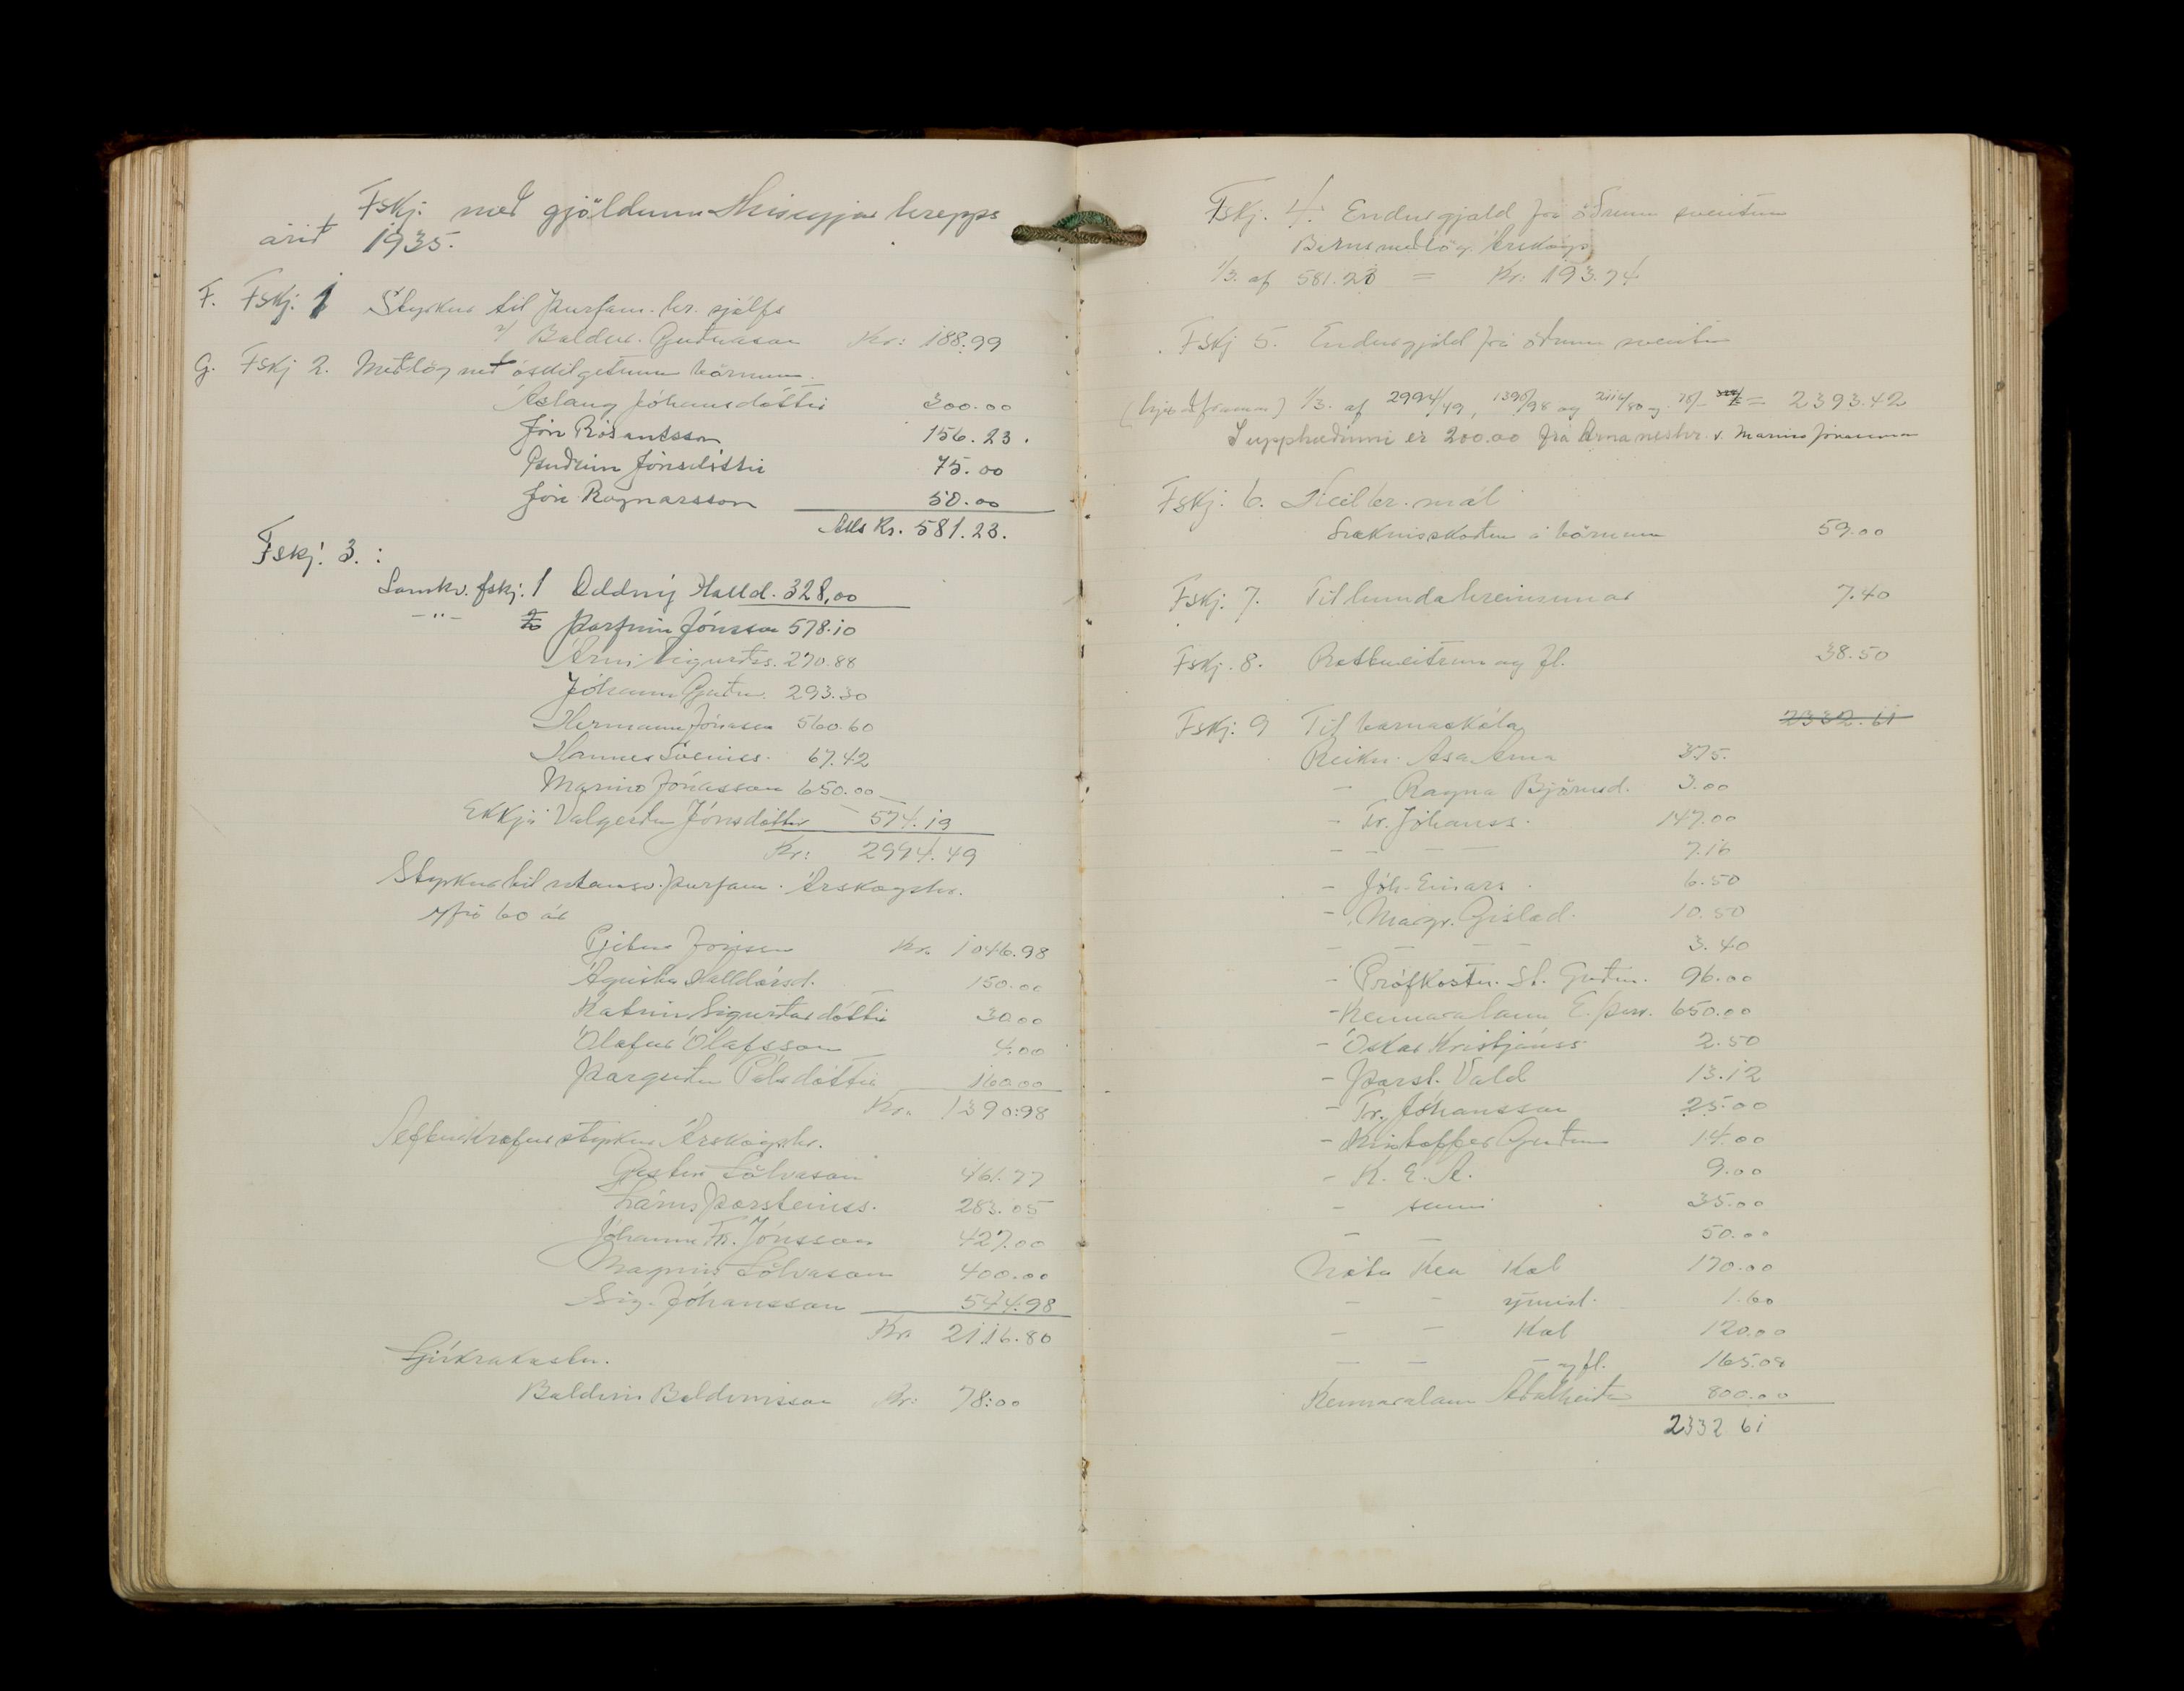 Fskj. með gjöldum Hríseyjar hrepps
árið 1935.
F. Fskj: 1 Styrkur til þurfam. hr. sjálfs
Baldur. Guðnason Kr: 188.99
G. Fskj 2. Meðlög með óskilgetnum börnum.
Áslaug Jóhannsdóttir 300.00
Jón Rósantsson 156.23.
Guðrún Jónsdóttir 75.00
Jón Ragnarsson 50.00
Alls Kr. 581.23.
Fskj. 3. :
Samkv. fskj. 1 Oddný Halld. 328,00
-"- Þorfinn Jónsson 578.10
Árni Sigurðss. 270.88
Jóhann Guðm. 293.30
Hermann Jónasson 560.60
Hannes Sveinss. 67.42
Marinó Jónasson 650.00
Ekkja Valgerður Jónsdóttir 574.19
Kr: 2994.49
Styrkur til utansv. þurfam. Árskógshr.
yfir 60 ár
Pjetur Jónsson Kr. 1046.98
Ágústa Halldórsd. 150.00
Katrín Sigurðardóttir 30.00
Ólafur Ólafsson 4.00
Þorgerður Pálsdóttir 160.00
Kr. 1390.98
Afturkræfur styrkur Árskógshr.
Gestur Sölvason 461.77
Lárus Þorsteinss. 283.05
Jóhann Fr. Jónsson 427.00
Magnús Sölvason 400.00
Sig. Jóhansson 544.98
Kr. 2116.80
Sjúkrakostn.
Baldvin Baldvinsson Kr: 78:00
Fskj. 4. Endurgjald frá öðrum sveitum
Barnsmeðlög. Árskógs
1/3. af 581.23 = Kr: 193.74
Fskj 5. Endurgjald frá öðrum sveitum
1/3. af 2994/49, 1390/98 og 2116/80 og 78/- = 2393.42
Í upphæðinni er 200.00 frá Arnarneshr. v. Marinó Jónasson
Fskj. 6. Heilbr. mál
Læknisskoðun á börnum 59.00
Fskj. 7. Til hundahreinsunar 7.40
Fskj. 8. Rottueitrun og fl. 38.50
Fskj: 9 Til barnaskóla 2332.61
Reikn. Asa Arna 3.75.
- Ragna Björnsd. 3.00
- Tr. Jóhanss. 147.00
- - - - 7.16
- Jóh. Einars. 6.50
- Margr. Gíslad. 10.50
- - - - 3.40
- Prófkostn. St. Guðm. 96.00
- Kennaralaun E. Þorv. 650.00
- Óskar Kristjánss 2.50
- Þorst. Vald 13.12
- Tr. Jóhansson 25.00
- Kristoffer Guðm 14.00
- K. E. A. 9.00
- sami 35.00
- - 50.00
Nóta Kea Kol 170.00
- - ýmisl. 1.60
- - Kol 120.00
- - - og fl. 165.08
Kennaralaun Aðalheiður 800.00
2332 61